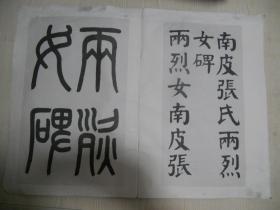 南皮張氏兩烈
女碑
兩烈女南皮張
兩烈
女碑